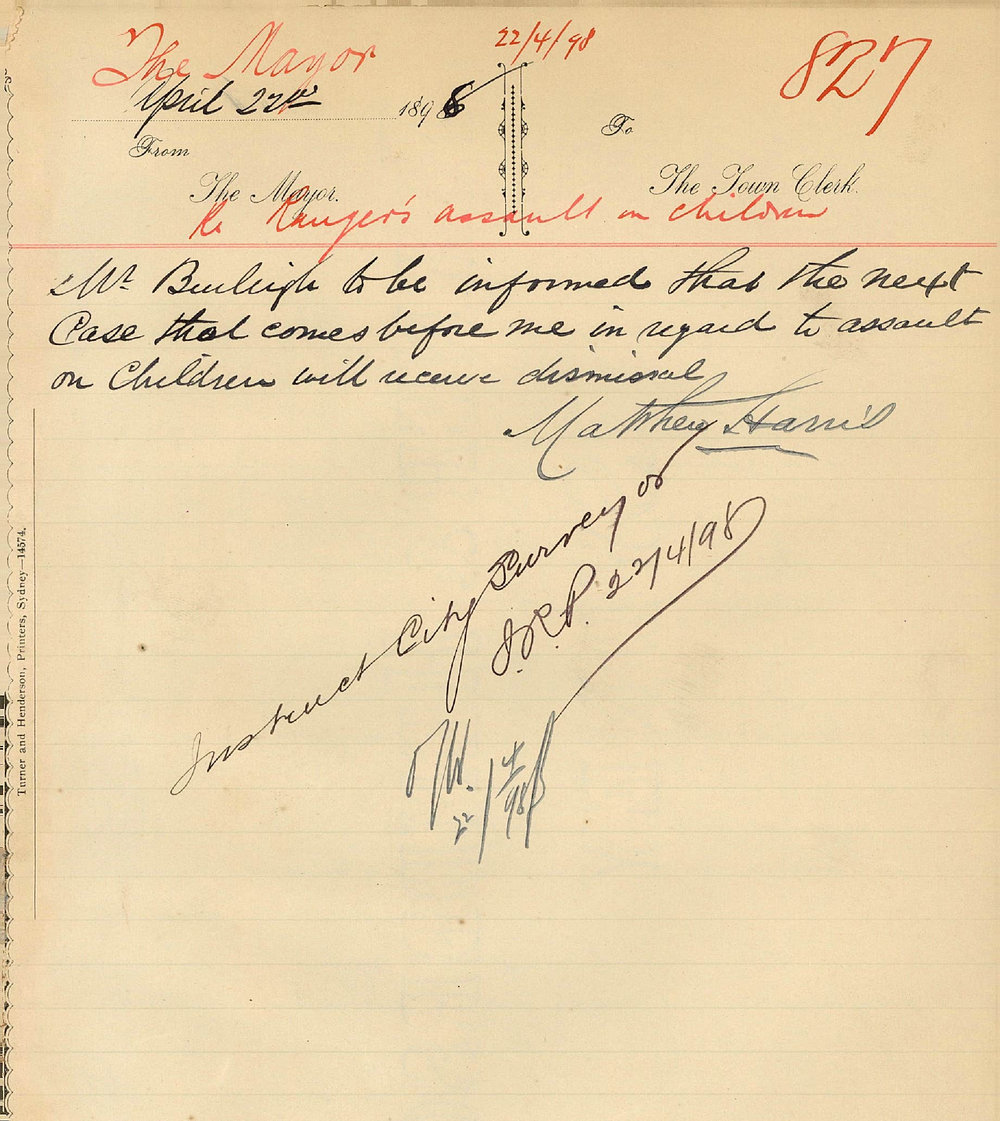 The Mayor
22/4/98
827
April 22nd 1898
From
To
The Mayor.
The Town Clerk.
Re Ranger's assault on children
Mr Burleigh to be informed that the next
Case that comes before me in regard to assault
on Children will receive dismissal
Matthew Harris
Instruct City Surveyor
22/4/98
22/4/98
Turner and Henderson, Printers, Sydney—14574.